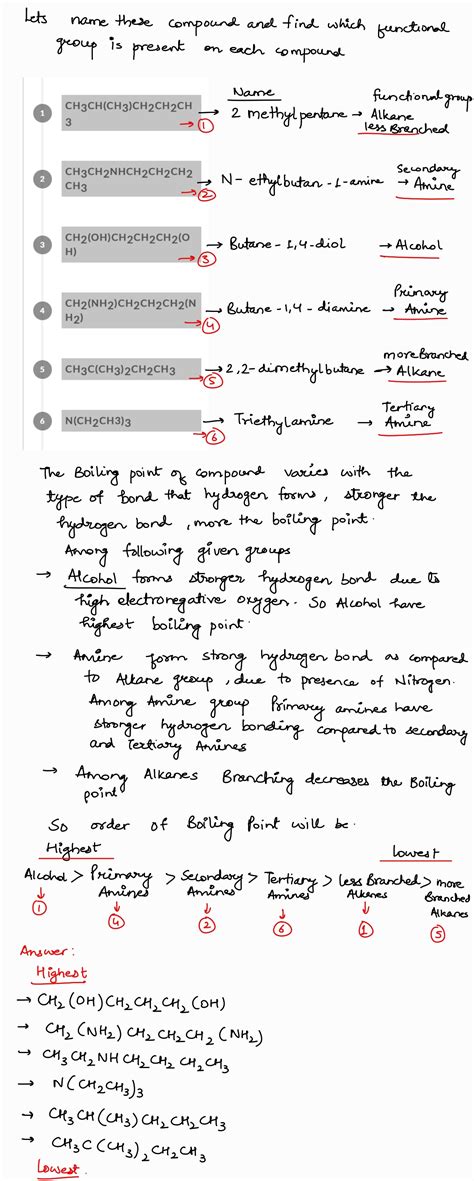 Lets name these compound and find which functional
group is present on each compound
Name
functional group
1 CH3CH(CH3)CH2CH2CH
3 → ① → 2 methylpentane → Alkane
less Branched
2 CH3CH2NHCH2CH2CH2
CH3 → ② → N-ethylbutan-1-amine → Secondary
Amine
3 CH2(OH)CH2CH2CH2(O
H) → ③ → Butane-1,4-diol → Alcohol
4 CH2(NH2)CH2CH2CH2(N
H2) → ④ → Butane-1,4-diamine → Primary
Amine
5 CH3C(CH3)2CH2CH3 → ⑤ → 2,2-dimethylbutane → more Branched
Alkane
6 N(CH2CH3)3 → ⑥ → Triethylamine → Tertiary
Amine
The Boiling point of compound varies with the
type of bond that hydrogen forms, stronger the
hydrogen bond, more the boiling point.
Among following given groups
→ Alcohol forms stronger hydrogen bond due to
high electronegative oxygen. So Alcohol have
highest boiling point.
→ Amine form strong hydrogen bond as compared
to Alkane group, due to presence of Nitrogen.
Among Amine group Primary amines have
stronger hydrogen bonding compared to secondary
and Tertiary Amines
→ Among Alkanes Branching decreases the Boiling
point
So order of Boiling Point will be.
Highest
lowest
Alcohol > Primary Amines > Secondary Amines > Tertiary Amines > less Branched Alkanes > more Branched Alkanes
① ④ ② ⑥ ① ⑤
Answer:
Highest
→ CH₂(OH)CH₂CH₂CH₂(OH)
→ CH₂(NH₂)CH₂CH₂CH₂(NH₂)
→ CH₃CH₂NHCH₂CH₂CH₂CH₃
→ N(CH₂CH₃)₃
→ CH₃CH(CH₃)CH₂CH₂CH₃
→ CH₃C(CH₃)₂CH₂CH₃
Lowest.